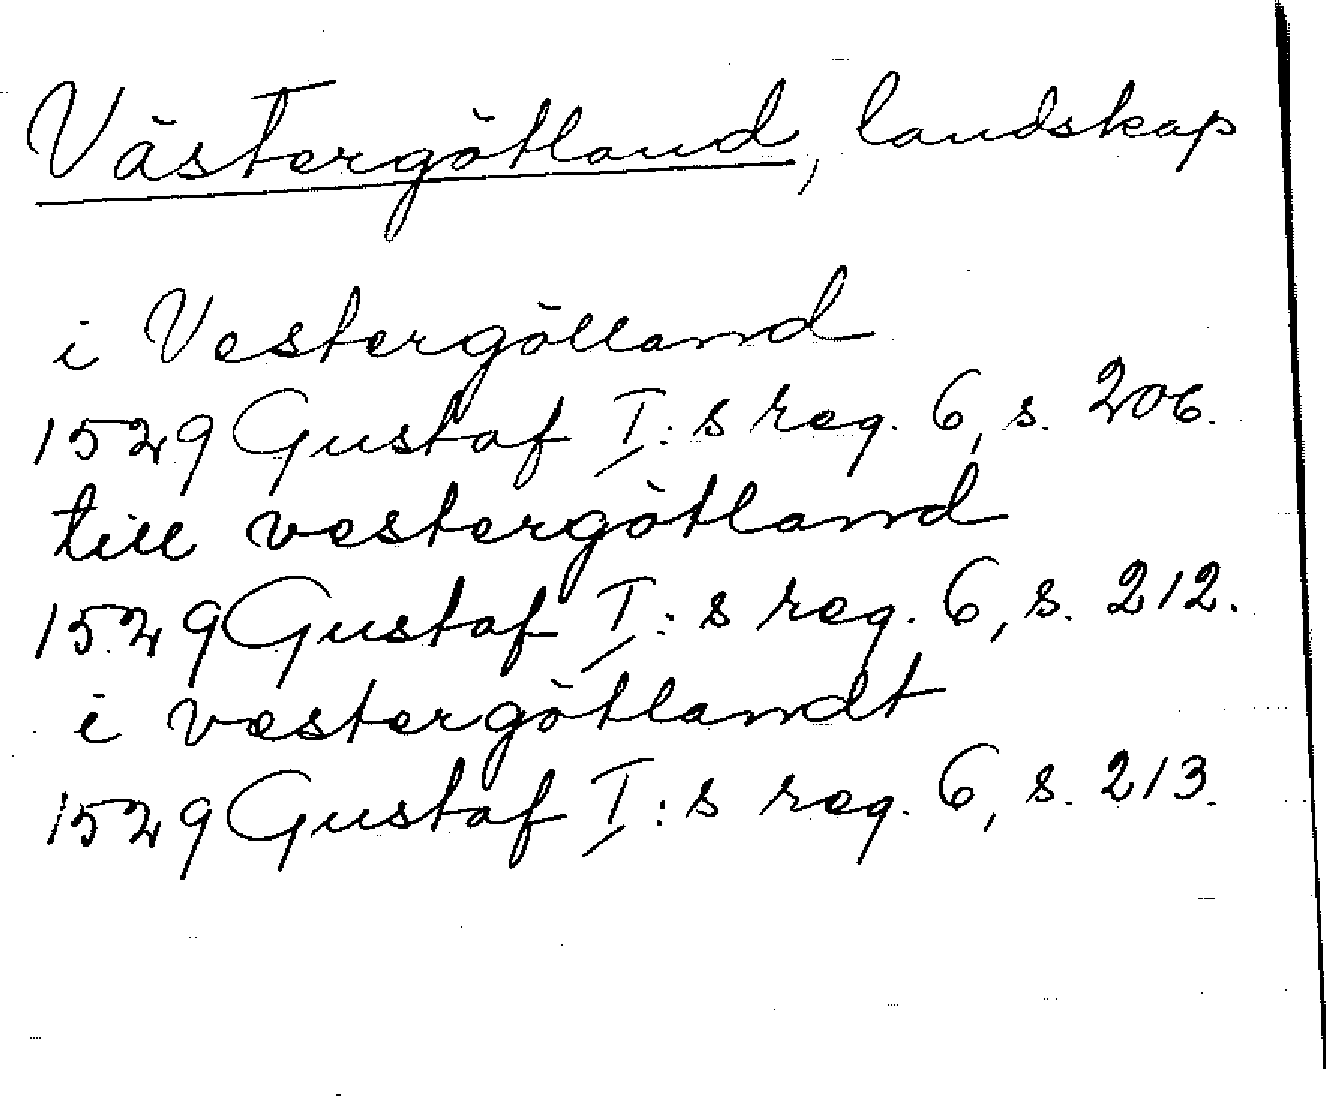 Västergötland, landskap
i Vestergölland
1529 Gustaf I:s reg. 6, s. 206.
till vestergötland
1529 Gustaf I:s reg. 6, s. 212.
i vestergötlandt
1529 Gustaf I:s reg. 6, s. 213.